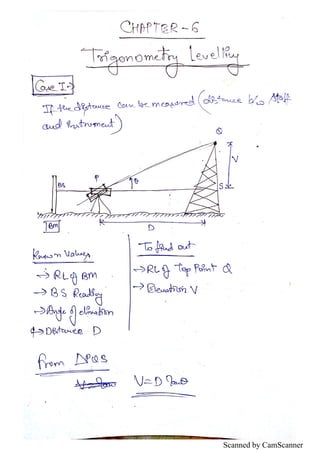 CHAPTER-6
Trigonometry Levelling
Case I->
If the distance can be measured (distance b/w staff
and instrument)
Q
V
P
θ
BS
S
BM
D
Known Values
-> RL of BM
-> BS Reading
-> Angle of elevation
-> Distance D
To find out
-> RL of Top Point Q
-> Elevation V
From Δ PQS
V = D tanθ
Scanned by CamScanner